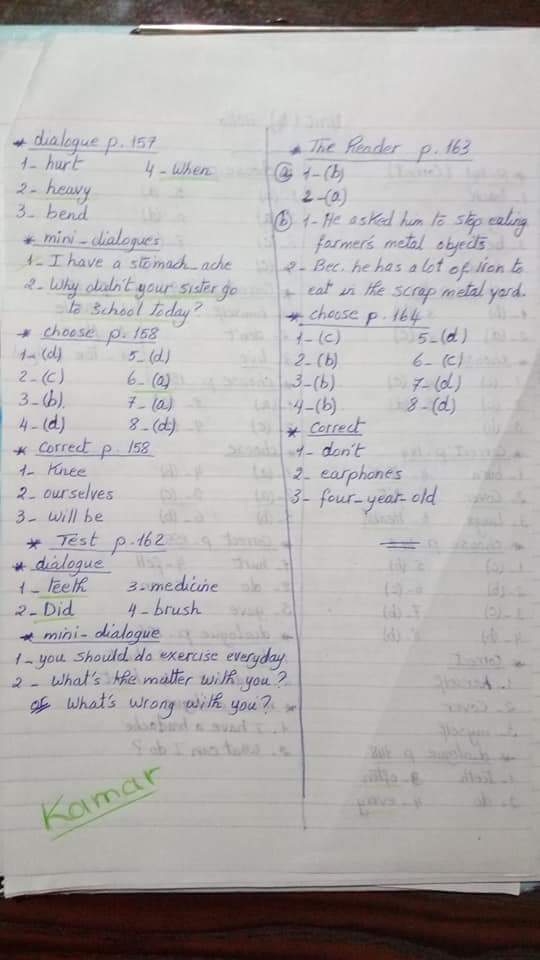 * dialogue p. 157
1- hurt 4- when
2- heavy
3- bend
* mini-dialogues
1- I have a stomach-ache
2- Why didn't your sister go
to school today?
* choose p. 158
1-(d) 5-(d)
2-(c) 6-(a)
3-(b) 7-(a)
4-(d) 8-(d)
* correct p. 158
1- Knee
2- ourselves
3- will be
* Test p. 162
* dialogue
1- teeth 3- medicine
2- Did 4- brush
* mini-dialogue
1- you should do exercise everyday
2- What's the matter with you?
or What's wrong with you?
Kamar
* The Reader p. 163
(a) 1-(b)
2-(a)
(b) 1- He asked him to stop eating
farmer's metal objects
2- Bec. he has a lot of iron to
eat in the scrap metal yard.
* choose p. 164
1-(c) 5-(d)
2-(b) 6-(c)
3-(b) 7-(d)
4-(b) 8-(d)
* correct
1- don't
2- earphones
3- four-year-old